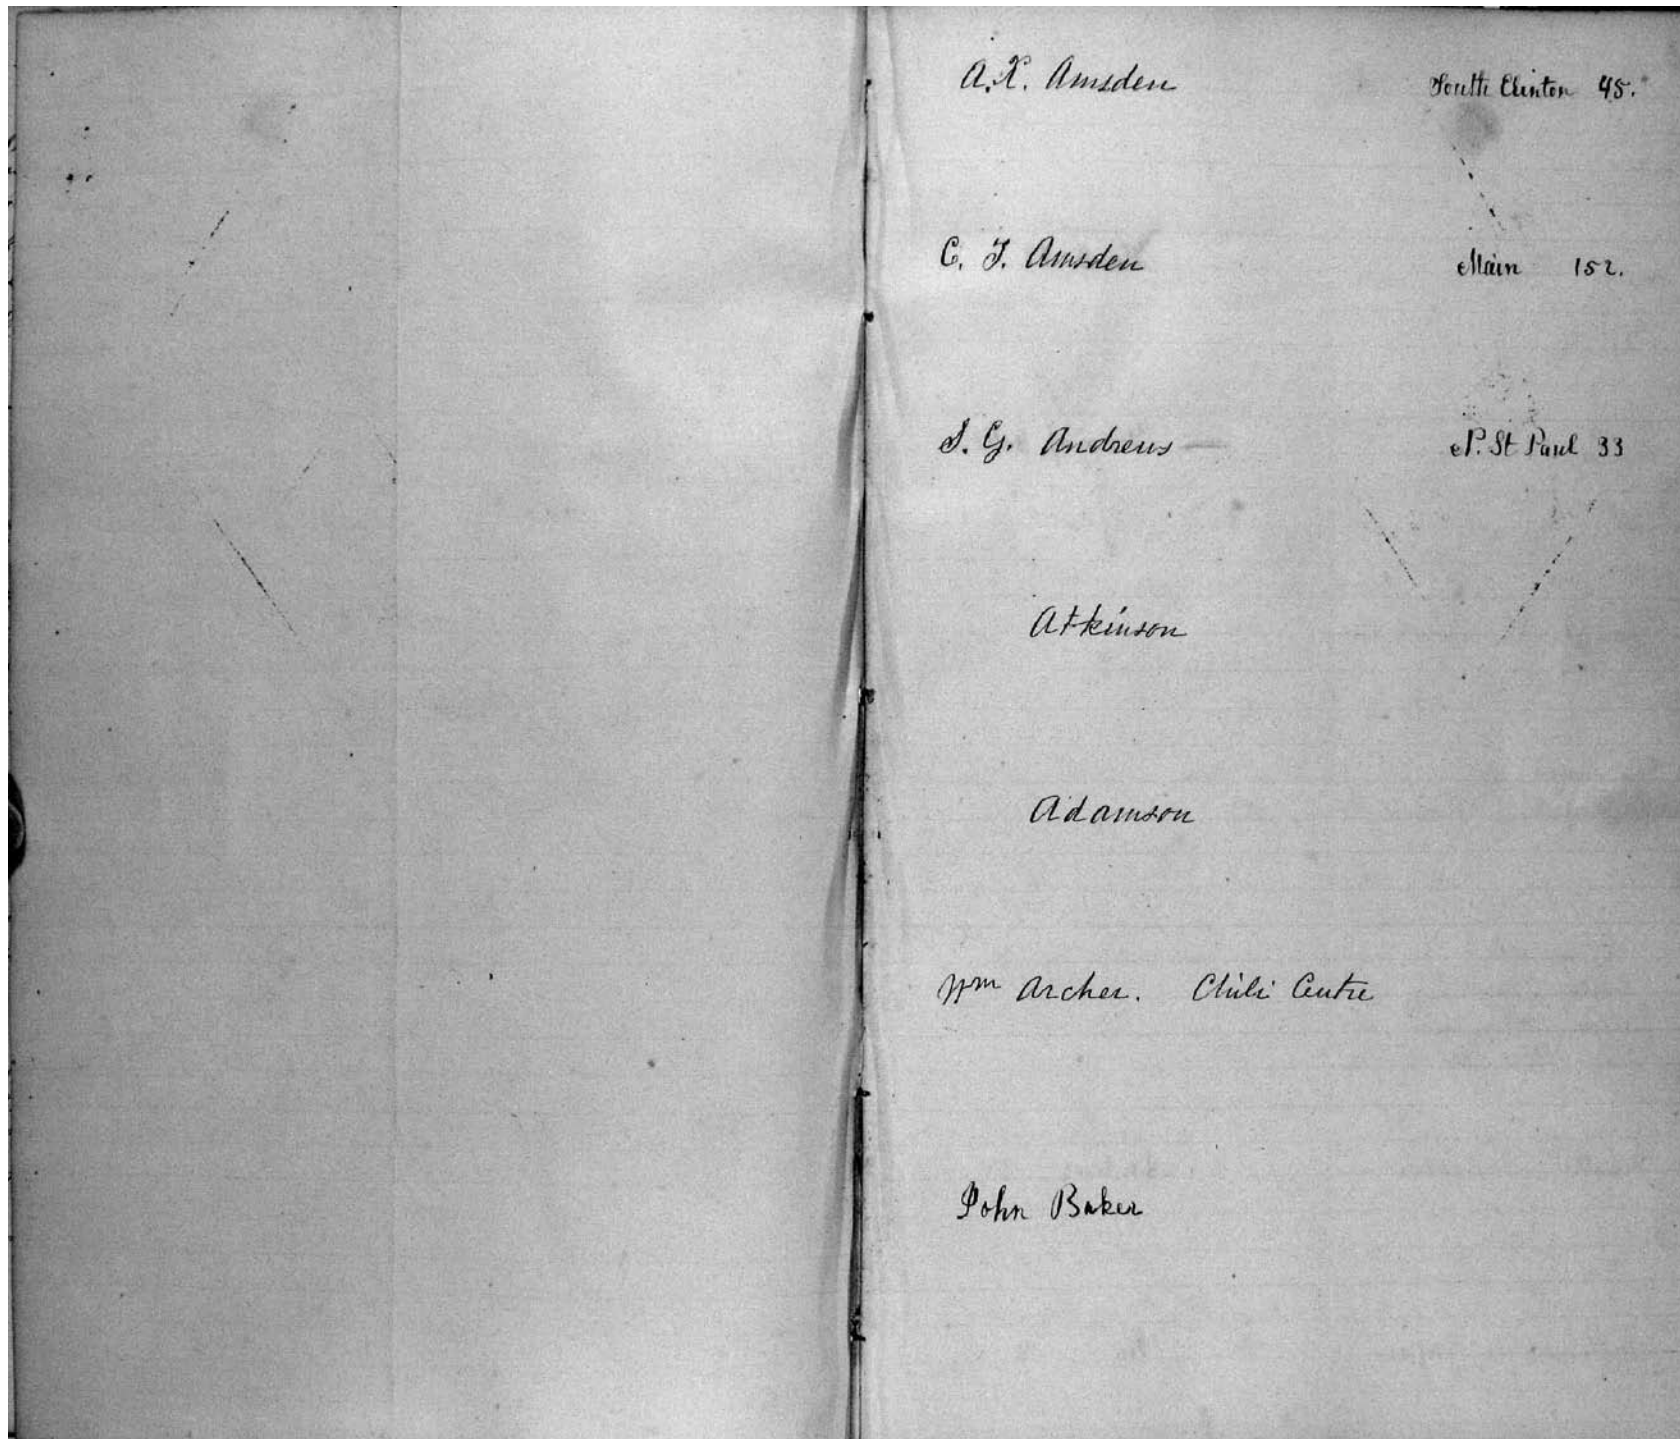 A. X. Amsden South Clinton 45.
C. F. Amsden Main 152.
S. G. Andrews N. St Paul 33
Atkinson
Adamson
Wm Archer. Chili Centre
John Baker